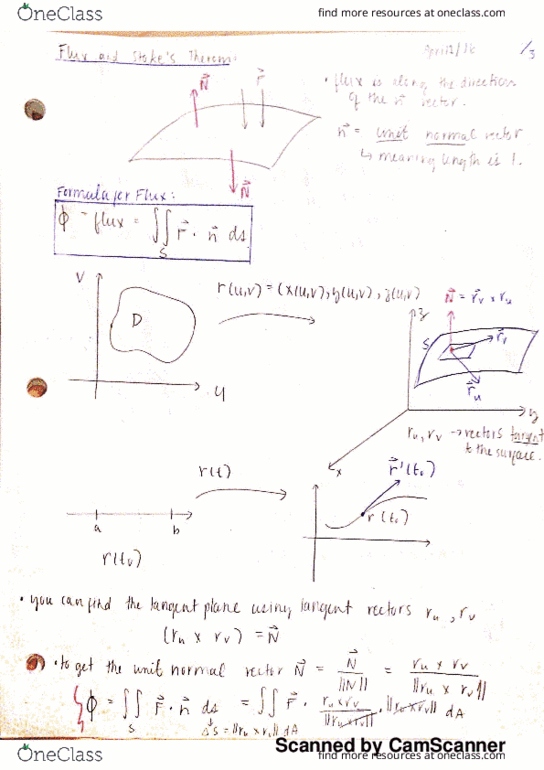 OneClass
find more resources at oneclass.com
Flux and Stoke's Theorem:
April 12/16
/3
N⃗
F⃗
• flux is along the direction
of the n⃗ vector.
n⃗ = unit normal vector
↳ meaning length is 1.
N⃗
Formula for Flux:
ϕ = flux = ∬ F⃗ · n⃗ ds
S
V
D
u
r(u,v) = (x(u,v), y(u,v), z(u,v))
N⃗ = r⃗v x ru
z
S
r⃗u
y
x
ru, rv → vectors tangent
to the surface.
r(t)
r⃗'(t₀)
r(t₀)
a b
r(t₀)
• you can find the tangent plane using tangent vectors ru, rv
(ru x rv) = N⃗
• to get the unit normal vector N⃗ = N⃗/||N|| = ru x rv/||ru x rv||
ϕ = ∬ F⃗ · n⃗ ds = ∬ F⃗ · ru x rv/||ru x rv|| · ||ru x rv|| dA
S
ΔS = ||ru x rv|| dA
Scanned by CamScanner
OneClass
find more resources at oneclass.com